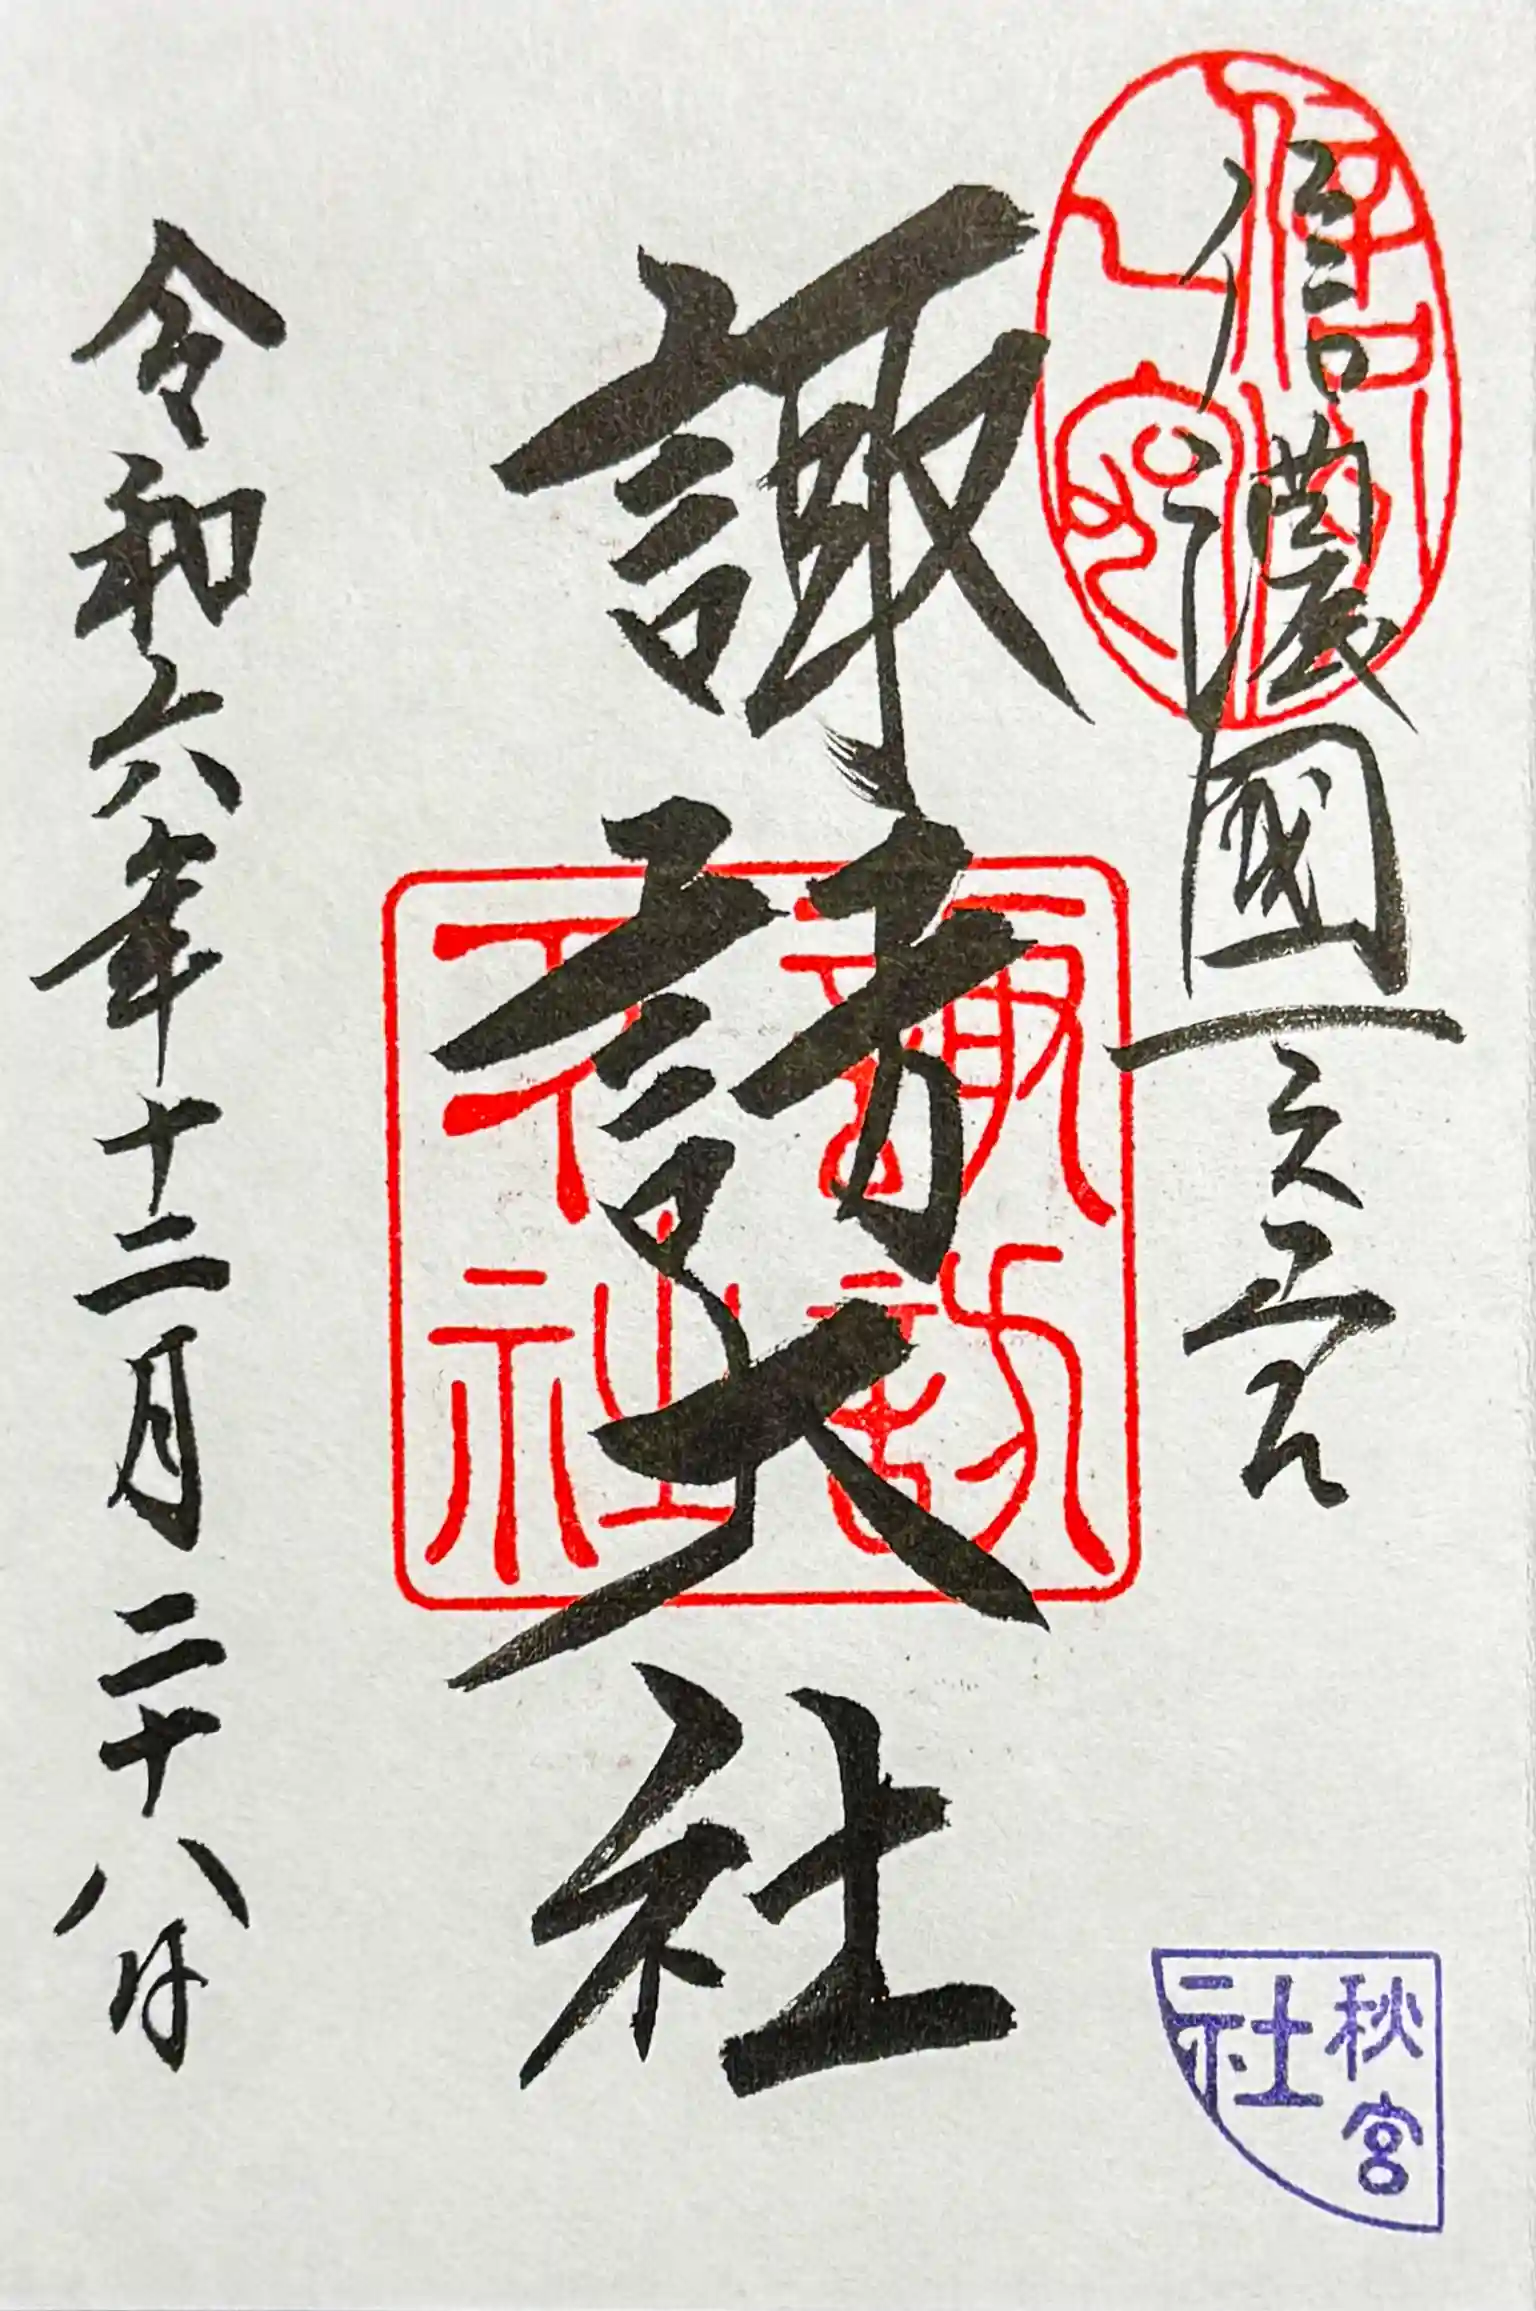 信濃國一之宮
諏訪大社
令和六年十二月二十八日
秋宮
社